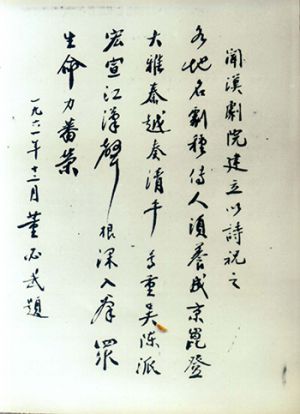 闻汉剧院建立以诗祝之
各地名剧种传人须养成京崑登
大雅秦越奏清平
重吴陈派
宏宣江汉声根深入群众
生命力蕃荣
一九六二年十二月董必武题